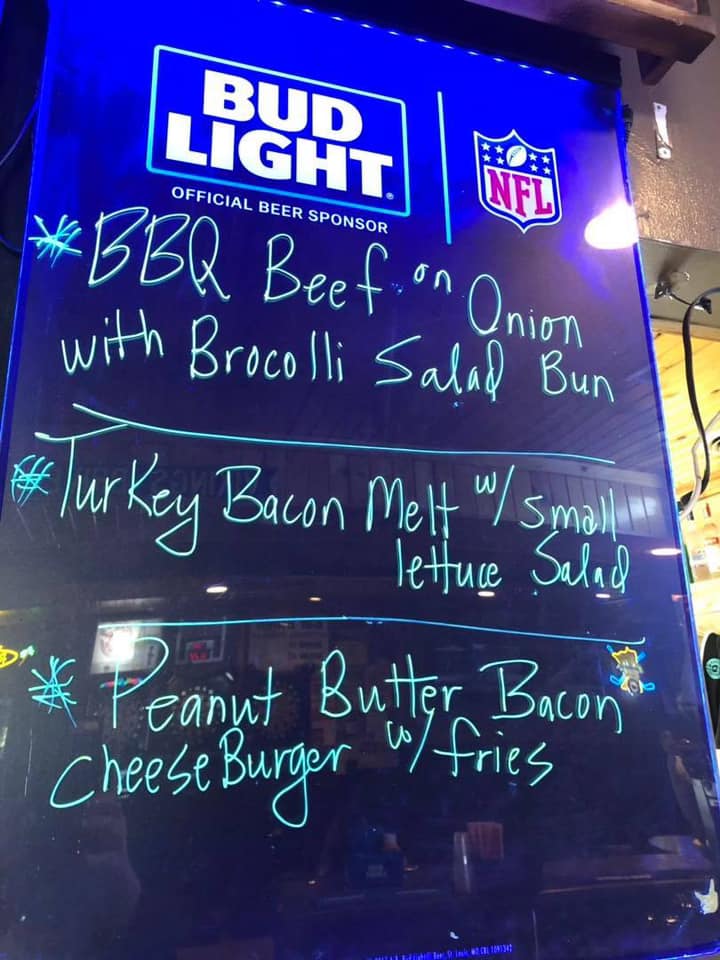 BUD
LIGHT
OFFICIAL BEER SPONSOR
NFL
* BBQ Beef on Onion
with Brocolli Salad Bun
* Turkey Bacon Melt w/ small
lettuce Salad
* Peanut Butter Bacon
cheese Burger w/ fries